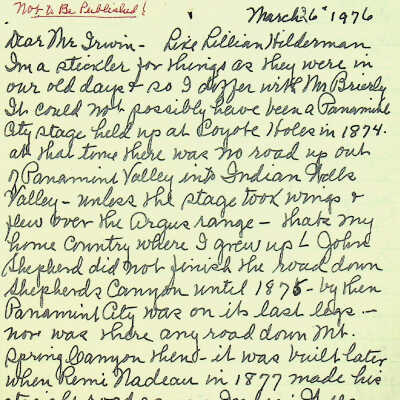 Not to Be Published!
March 6 1976
Dear Mr. Irwin - Like Lillian Hilderman
Im a stickler for things as they were in
our old days & so I differ with Mr Brierly
It could not possibly have been a Panamint
City stage held up at Coyote Holes in 1874.
at that time there was no road up out
of Panamint Valley into Indian Wells
Valley - unless the stage took wings &
flew over the Argus range - thats my
home country where I grew up & John
Shepherd did not finish the road down
Shepherds Canyon until 1875 - by then
Panamint City was on its last legs. -
nor was there any road down Mt.
Spring Canyon then - it was built later
when Remi Nadeau in 1877 made his